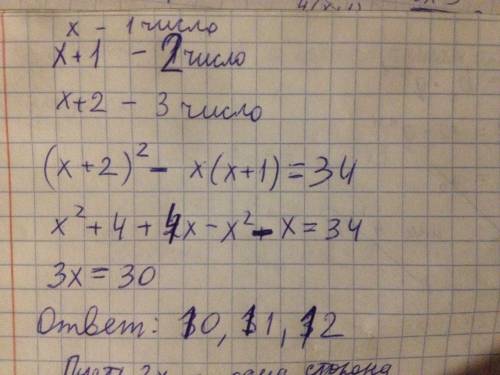 x - 1 число
x+1 - 2 число
x+2 - 3 число
(x+2)² - x(x+1)=34
x²+4+4x-x²-x=34
3x=30
Ответ: 10, 11, 12
сторона